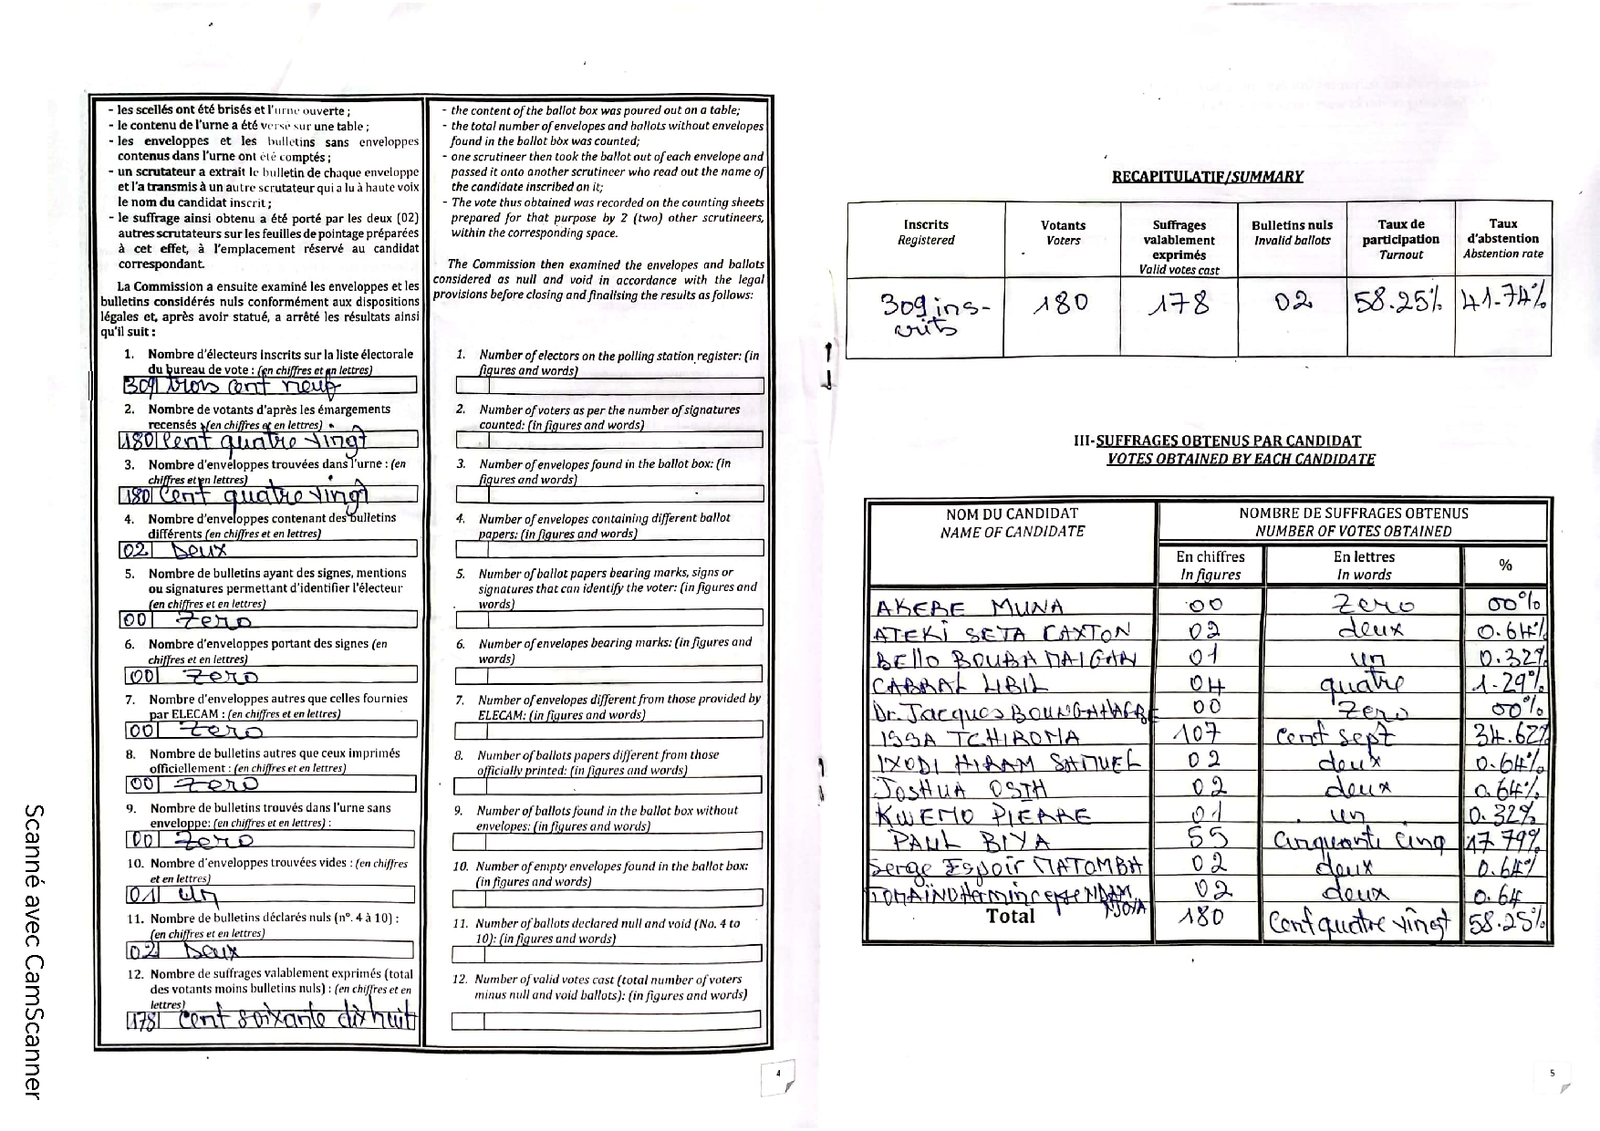 - les scellés ont été brisés et l'urne ouverte ;
- le contenu de l'urne a été versé sur une table ;
- les enveloppes et les bulletins sans enveloppes
contenus dans l'urne ont été comptés ;
- un scrutateur a extrait le bulletin de chaque enveloppe
et l'a transmis à un autre scrutateur qui a lu à haute voix
le nom du candidat inscrit ;
- le suffrage ainsi obtenu a été porté par les deux (02)
autres scrutateurs sur les feuilles de pointage préparées
à cet effet, à l'emplacement réservé au candidat
correspondant.
La Commission a ensuite examiné les enveloppes et les
bulletins considérés nuls conformément aux dispositions
légales et, après avoir statué, a arrêté les résultats ainsi
qu'il suit :
1. Nombre d'électeurs inscrits sur la liste électorale
du bureau de vote : (en chiffres et en lettres)
309 trois cent neuf
2. Nombre de votants d'après les émargements
recensés : (en chiffres et en lettres)
180 cent quatre vingt
3. Nombre d'enveloppes trouvées dans l'urne : (en
chiffres et en lettres)
180 cent quatre vingt
4. Nombre d'enveloppes contenant des bulletins
différents (en chiffres et en lettres)
02 Deux
5. Nombre de bulletins ayant des signes, mentions
ou signatures permettant d'identifier l'électeur
(en chiffres et en lettres)
00 Zero
6. Nombre d'enveloppes portant des signes (en
chiffres et en lettres)
00 Zero
7. Nombre d'enveloppes autres que celles fournies
par ELECAM : (en chiffres et en lettres)
00 Zero
8. Nombre de bulletins autres que ceux imprimés
officiellement : (en chiffres et en lettres)
00 Zero
9. Nombre de bulletins trouvés dans l'urne sans
enveloppe: (en chiffres et en lettres) :
00 Zero
10. Nombre d'enveloppes trouvées vides : (en chiffres
et en lettres)
01 un
11. Nombre de bulletins déclarés nuls (n°. 4 à 10) :
(en chiffres et en lettres)
02 Deux
12. Nombre de suffrages valablement exprimés (total
des votants moins bulletins nuls) : (en chiffres et en
lettres)
178 cent soixante dix huit
- the content of the ballot box was poured out on a table;
- the total number of envelopes and ballots without envelopes
found in the ballot box was counted;
- one scrutineer then took the ballot out of each envelope and
passed it onto another scrutineer who read out the name of
the candidate inscribed on it;
- The vote thus obtained was recorded on the counting sheets
prepared for that purpose by 2 (two) other scrutineers,
within the corresponding space.
The Commission then examined the envelopes and ballots
considered as null and void in accordance with the legal
provisions before closing and finalising the results as follows:
1. Number of electors on the polling station register: (in
figures and words)
2. Number of voters as per the number of signatures
counted: (in figures and words)
3. Number of envelopes found in the ballot box: (in
figures and words)
4. Number of envelopes containing different ballot
papers: (in figures and words)
5. Number of ballot papers bearing marks, signs or
signatures that can identify the voter: (in figures and
words)
6. Number of envelopes bearing marks: (in figures and
words)
7. Number of envelopes different from those provided by
ELECAM: (in figures and words)
8. Number of ballots papers different from those
officially printed: (in figures and words)
9. Number of ballots found in the ballot box without
envelopes: (in figures and words)
10. Number of empty envelopes found in the ballot box:
(in figures and words)
11. Number of ballots declared null and void (No. 4 to
10): (in figures and words)
12. Number of valid votes cast (total number of voters
minus null and void ballots): (in figures and words)
4
Scanné avec CamScanner
RECAPITULATIF/SUMMARY
Inscrits Registered | Votants Voters | Suffrages valablement exprimés Valid votes cast | Bulletins nuls Invalid ballots | Taux de participation Turnout | Taux d'abstention Abstention rate
309 ins-crits | 180 | 178 | 02 | 58.25% | 41.74%
III-SUFFRAGES OBTENUS PAR CANDIDAT
VOTES OBTAINED BY EACH CANDIDATE
NOM DU CANDIDAT NAME OF CANDIDATE | NOMBRE DE SUFFRAGES OBTENUS NUMBER OF VOTES OBTAINED
En chiffres In figures | En lettres In words | %
AKERE MUNA 00 Zero 00%
ATEKI SETA CAXTON 02 deux 0.64%
BEllo BOUBA MAIGARI 01 un 0.32%
CABRAL LIBIL 04 quatre 1.29%
Dr. Jacques BOUNGHAHGBE 00 Zero 00%
ISSA TCHIROMA 107 cent sept 34.62%
IYODI HIRAM SAMUEL 02 deux 0.64%
JOSHUA OSIH 02 deux 0.64%
KWEMO PIERRE 01 un 0.32%
PAUL BIYA 55 cinquante cinq 17.79%
Serge Espoir MATOMBA 02 deux 0.64%
TOMAÏNO Hermine NDAM NJOYA 02 deux 0.64
Total 180 Cent quatre vingt 58.25%
5